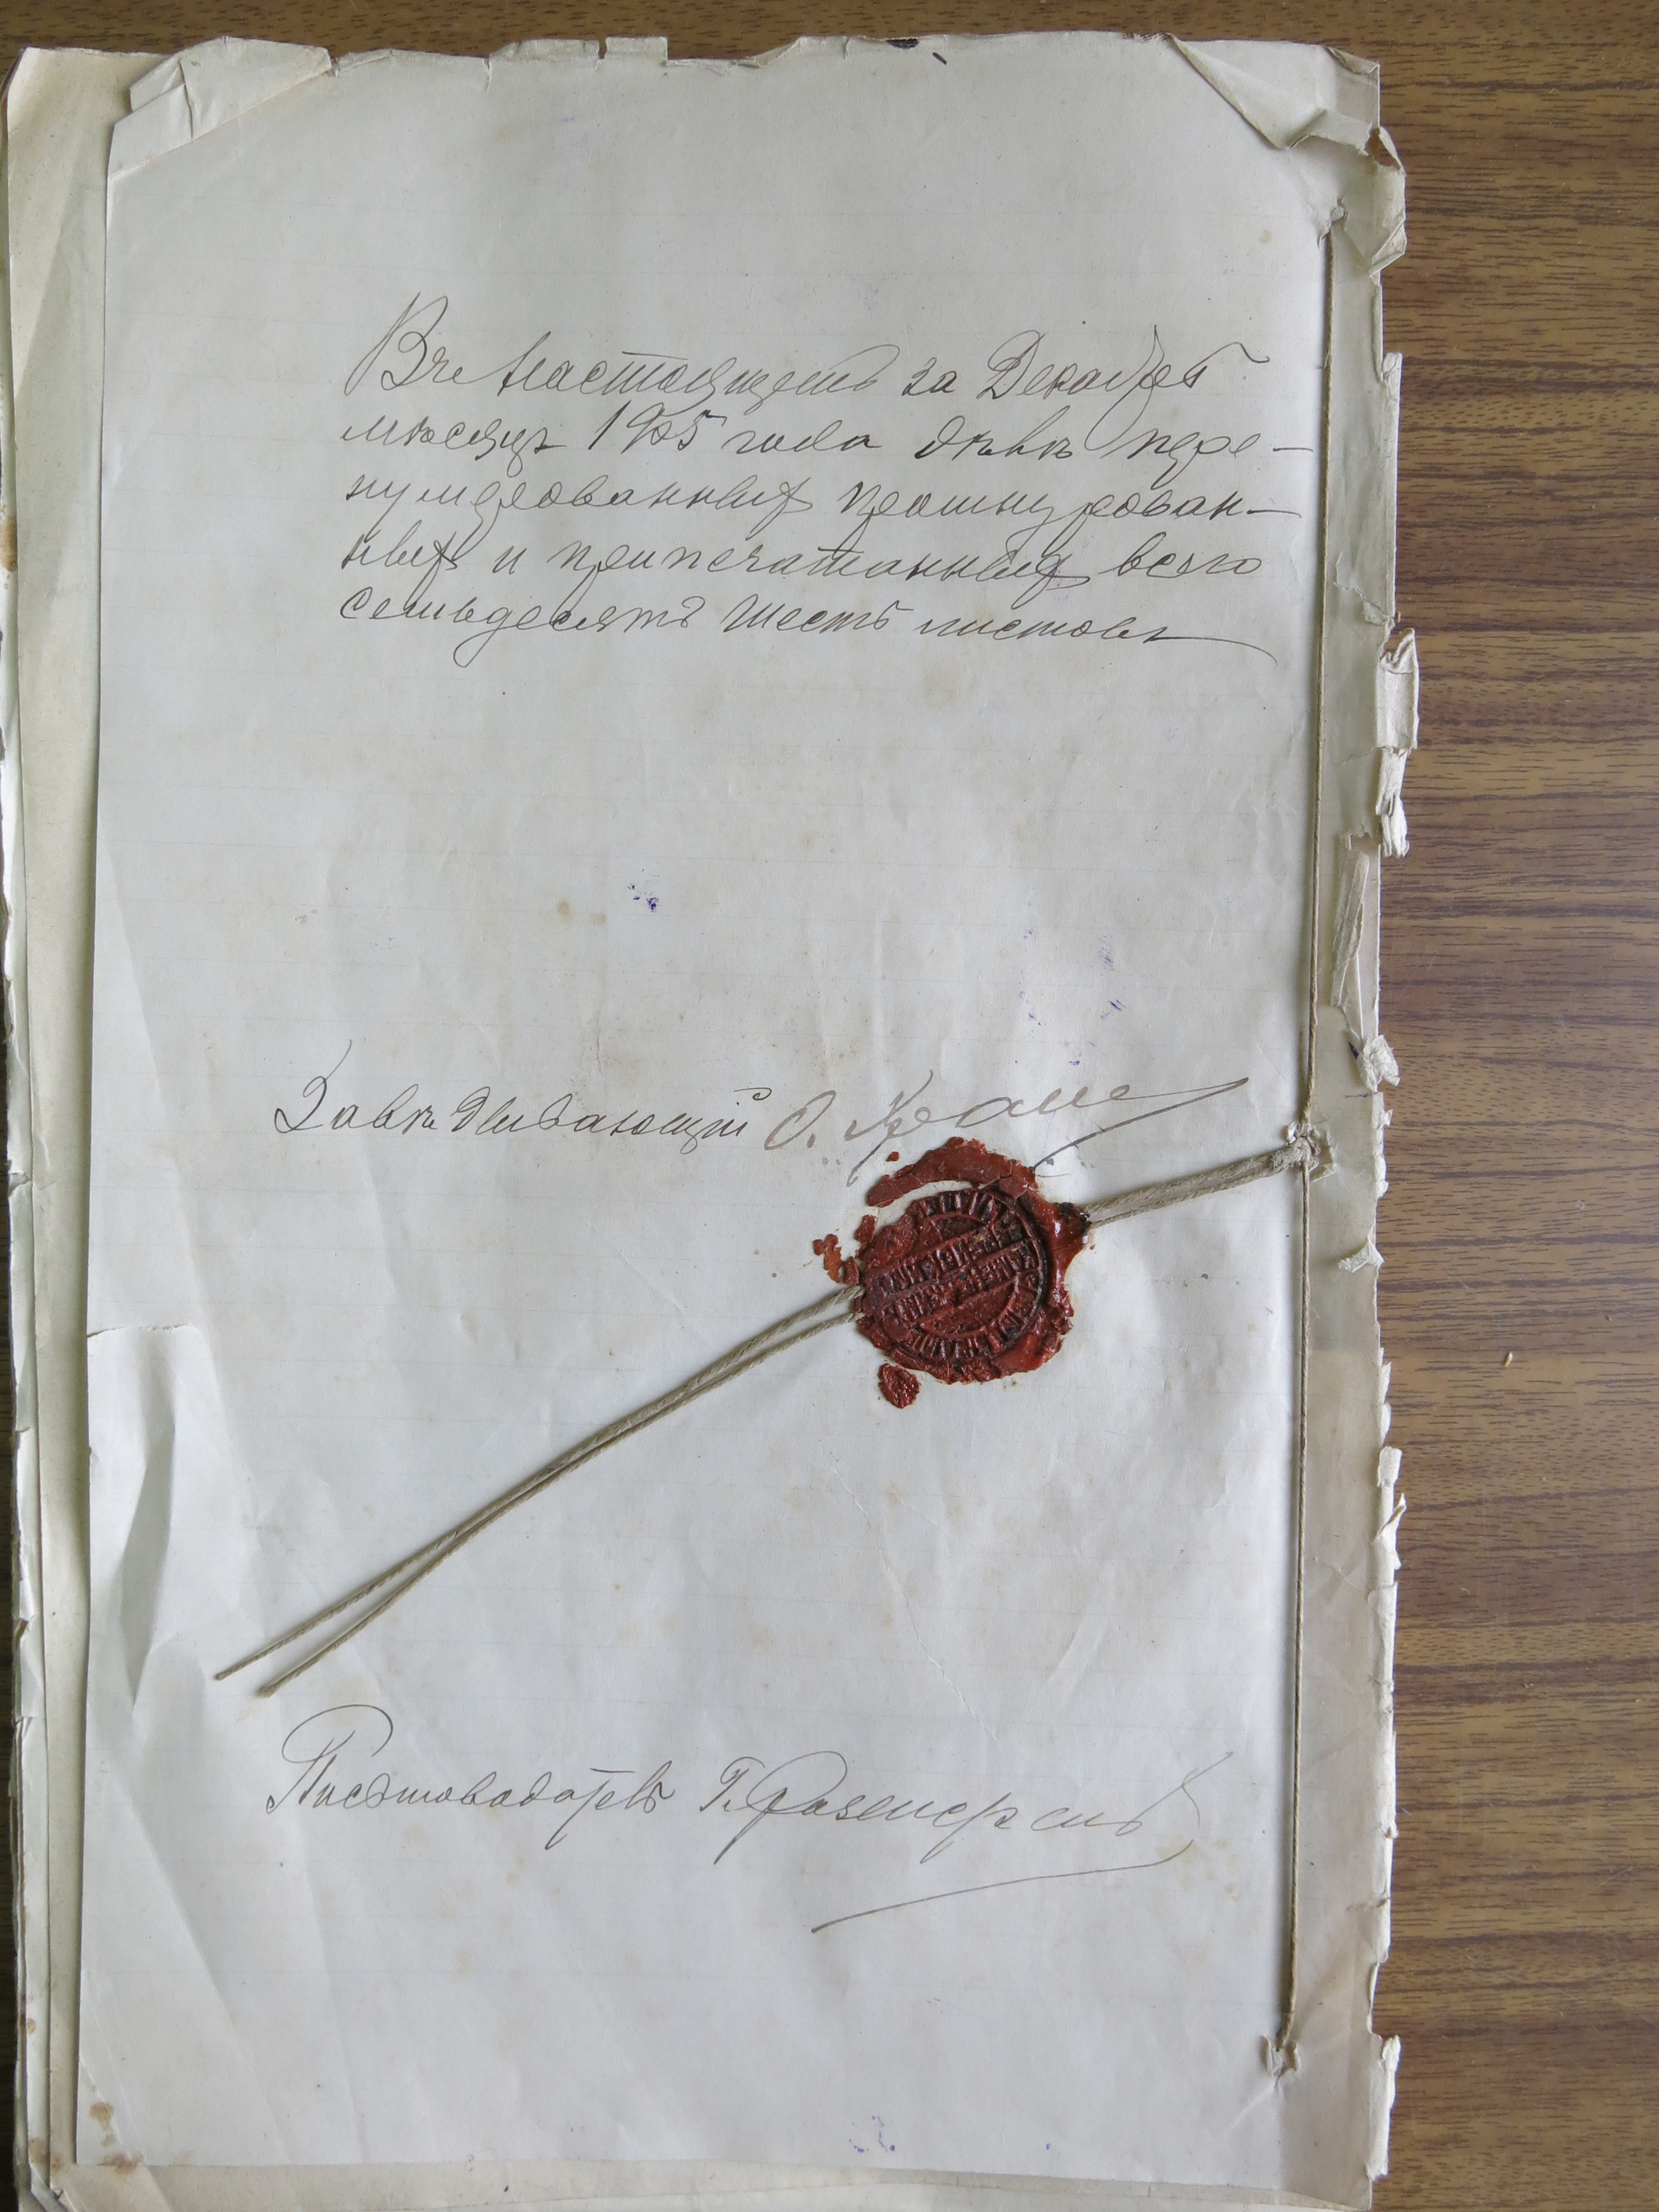 Въ настоящемъ за Декабрь
мѣсяцъ 1905 года дѣлѣ пере-
нумерованныхъ прошнурован-
ныхъ и припечатанныхъ всего
семьдесятъ шесть листовъ
Завѣдывающій О. Краме
Письмоводитель Г.